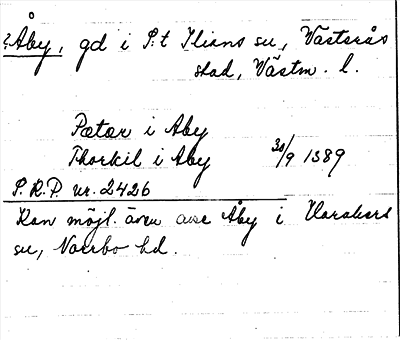 Å
?Åby, gd i S:t Ilians sn, Västerås
stad, Västm. l.
Pætær i Aby
Thorkil i Aby 30/9 1389
P.R.P. nr. 2426
Kan möjl. även avse Åby i Haraker
sn, Norrbo hd.